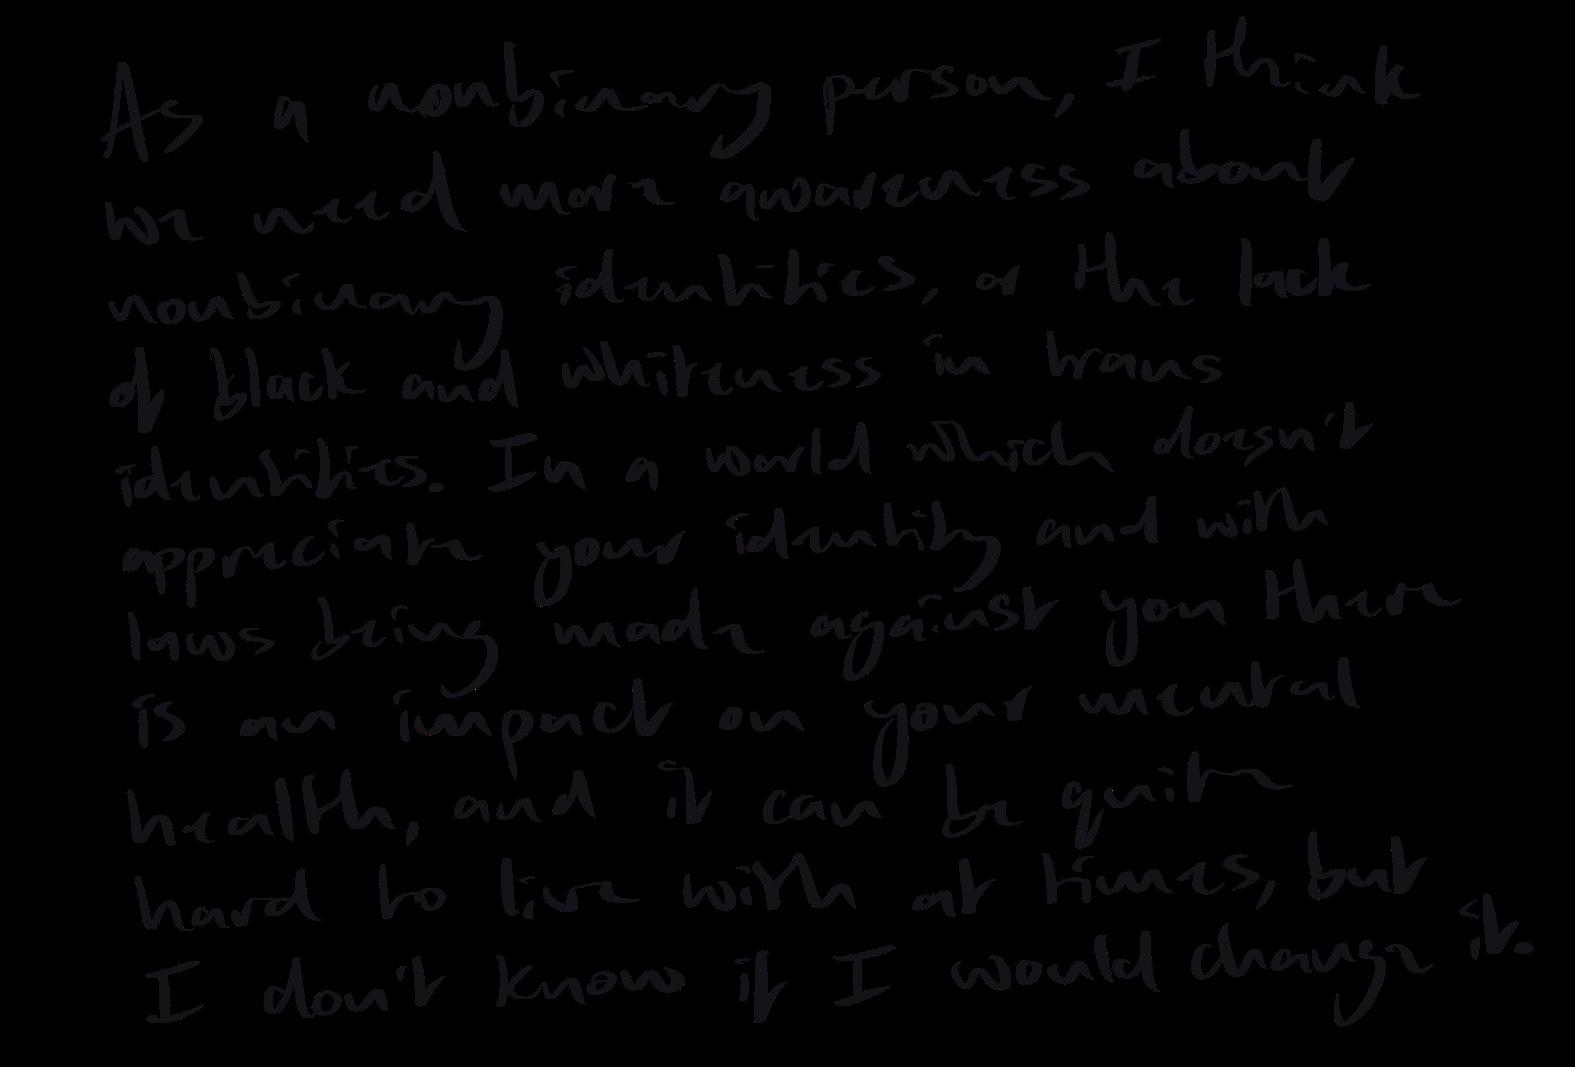 As a nonbinary person, I think
we need more awareness about
nonbinary identities, or the lack
of black and whiteness in trans
identities. In a world which doesn't
appreciate your identity and with
laws being made against you there
is an impact on your mental
health, and it can be quite
hard to live with at times, but
I don't know if I would change it.